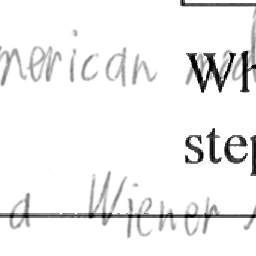 merican
Wh
step
a Wiener